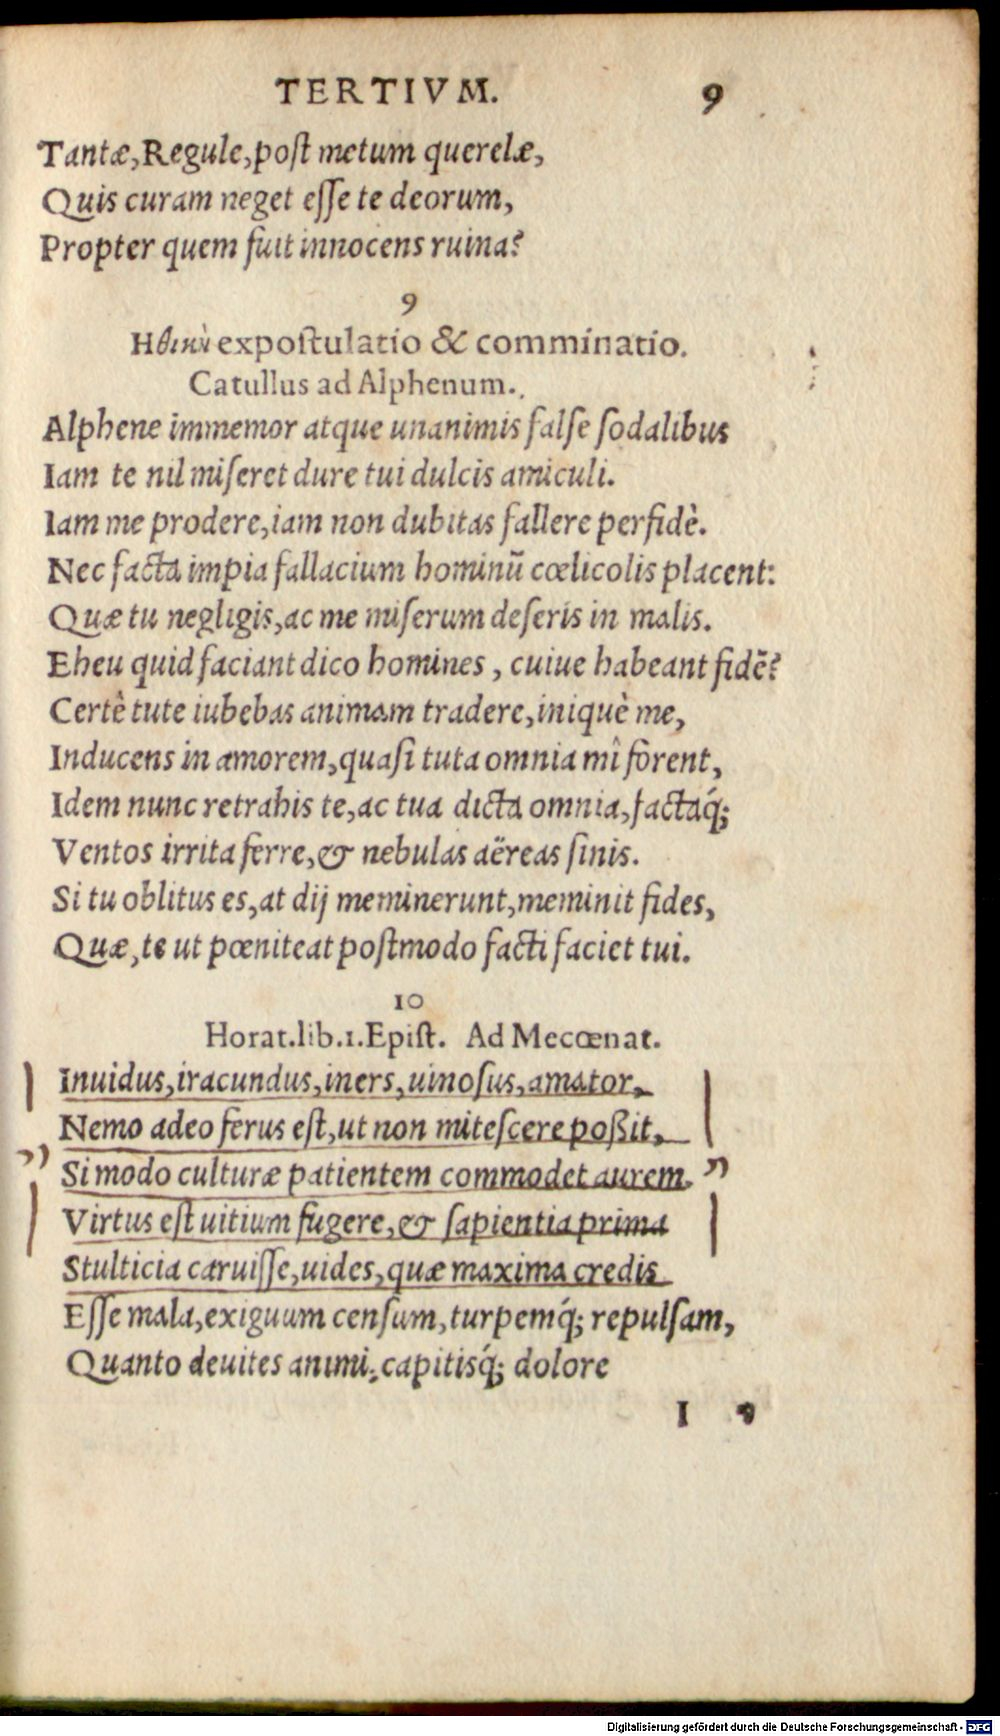 TERTIVM. 9
Tantæ, Regule, post metum querelæ,
Quis curam neget esse te deorum,
Propter quem fuit innocens ruina?
9
Ηθικὴ expostulatio & comminatio.
Catullus ad Alphenum.
Alphene immemor atque unanimis false sodalibus
Iam te nil miseret dure tui dulcis amiculi.
Iam me prodere, iam non dubitas fallere perfidè.
Nec facta impia fallacium hominū cœlicolis placent:
Quæ tu negligis, ac me miserum deseris in malis.
Eheu quid faciant dico homines, cuiue habeant fidē?
Certè tute iubebas animam tradere, iniquè me,
Inducens in amorem, quasi tuta omnia mî forent,
Idem nunc retrahis te, ac tua dicta omnia, factaq́;
Ventos irrita ferre, & nebulas aëreas sinis.
Si tu oblitus es, at dij meminerunt, meminit fides,
Quæ, te ut pœniteat postmodo facti faciet tui.
10
Horat. lib. 1. Epist. Ad Mecœnat.
Inuidus, iracundus, iners, uinosus, amator,
Nemo adeo ferus est, ut non mitescere poßit,
Si modo culturæ patientem commodet aurem.
Virtus est uitium fugere, & sapientia prima
Stulticia caruisse, uides, quæ maxima credis
Esse mala, exiguum censum, turpemq́; repulsam,
Quanto deuites animi, capitisq́; dolore
I 9
Digitalisierung gefördert durch die Deutsche Forschungsgemeinschaft - DFG